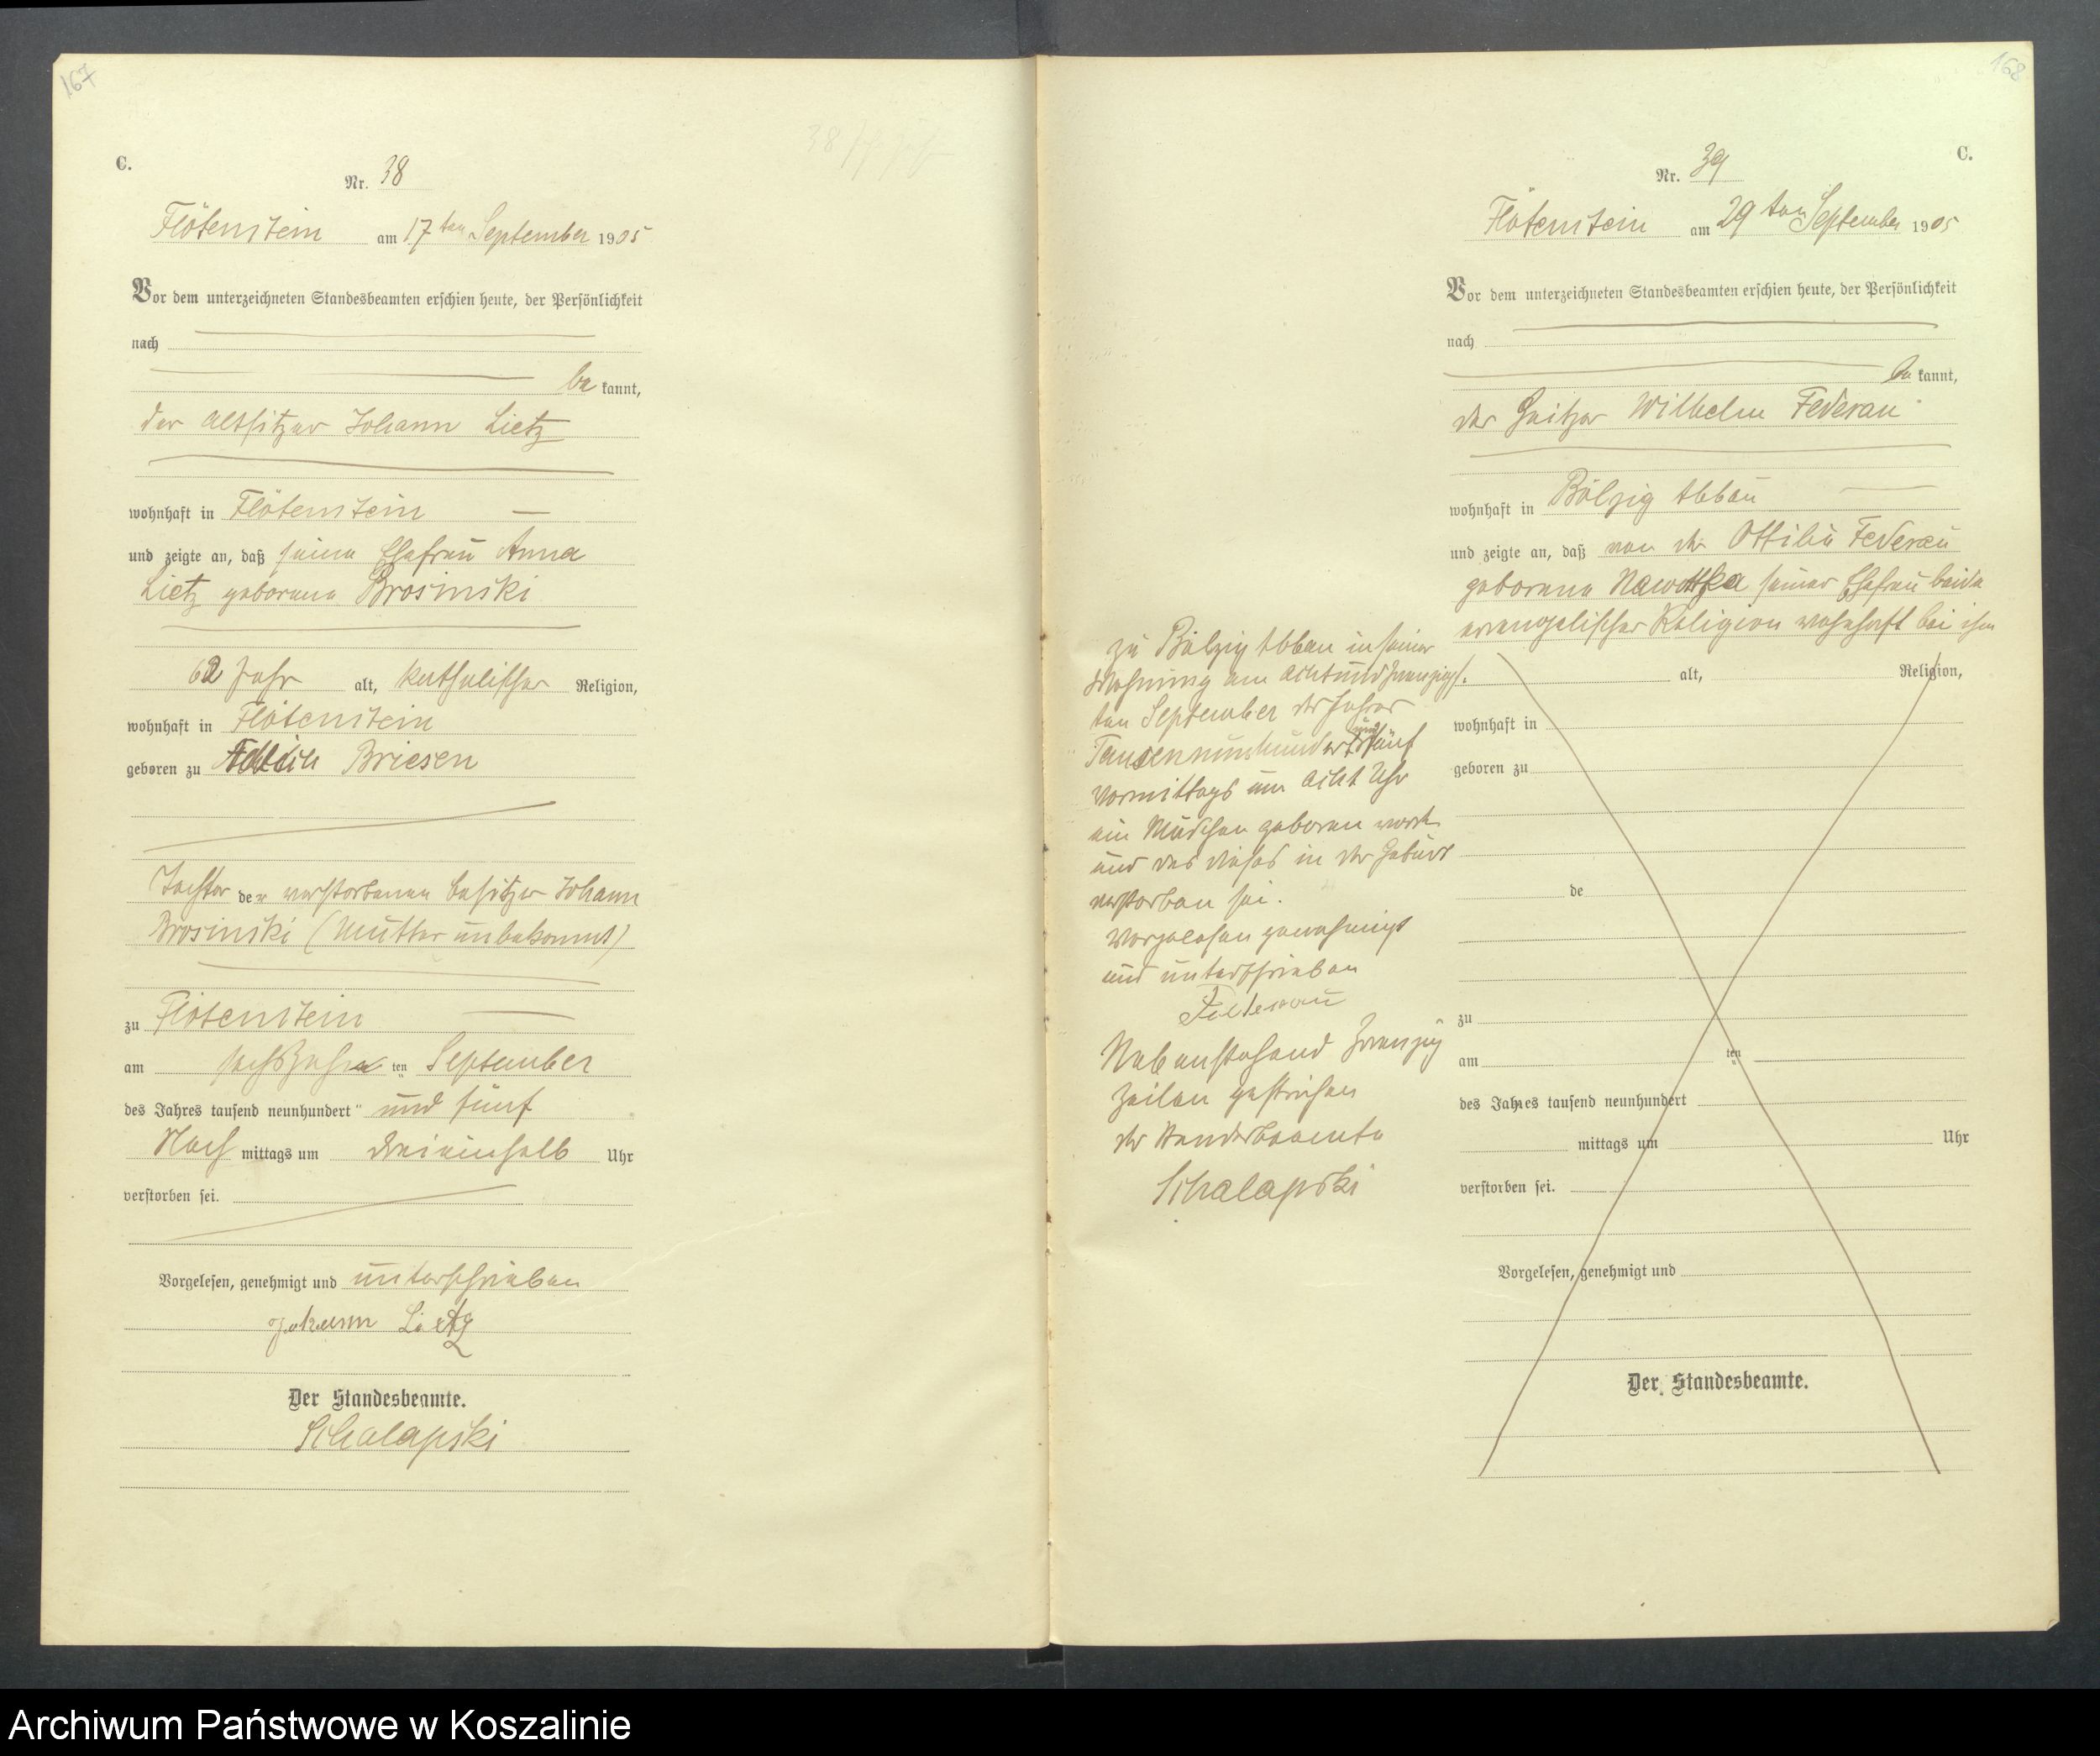 167
C.
Nr. 38
Flötenstein am 17ten September 1905
Vor dem unterzeichneten Standesbeamten erschien heute, der Persönlichkeit
nach
be kannt,
der Altsitzer Johann Lietz
wohnhaft in Flötenstein
und zeigte an, daß seine Ehefrau Anna
Lietz geborene Brosinski
62 Jahr alt, katholischer Religion,
wohnhaft in Flötenstein
geboren zu Briesen
Tochter der verstorbenen Besitzer Johann
Brosinski (Mutter unbekannt)
zu Flötenstein
am sechszehn ten September
des Jahres tausend neunhundert und fünf
Nach mittags um dreieinhalb Uhr
verstorben sei.
Vorgelesen, genehmigt und unterschrieben
Johann Lietz
Der Standesbeamte.
Schalapski
168
C.
Nr. 39
Flötenstein am 29ten September 1905
Vor dem unterzeichneten Standesbeamten erschien heute, der Persönlichkeit
nach
be kannt,
der Wilhelm Federau
wohnhaft in Bölzig Abbau
und zeigte an, daß von der Ottilie Federau
geborene Nawottka seiner Ehefrau beide
evangelischer Religion wohnhaft bei ihm
zu Bölzig Abbau in seiner
Wohnung am achtundzwanzigs.
ten September des Jahres
Tausenneunhundert und fünf
Vormittags um acht Uhr
ein Mädchen geboren
und das dieses in der Geburt
verstorben sei.
Vorgelesen genehmigt
und unterschrieben
Federau
Nebenstehend zwanzig
Zeilen gestrichen
der Standesbeamte
Schalapski
alt, Religion,
wohnhaft in
geboren zu
de
zu
am ten
des Jahres tausend neunhundert
mittags um Uhr
verstorben sei.
Vorgelesen, genehmigt und
Der Standesbeamte.
Archiwum Państwowe w Koszalinie